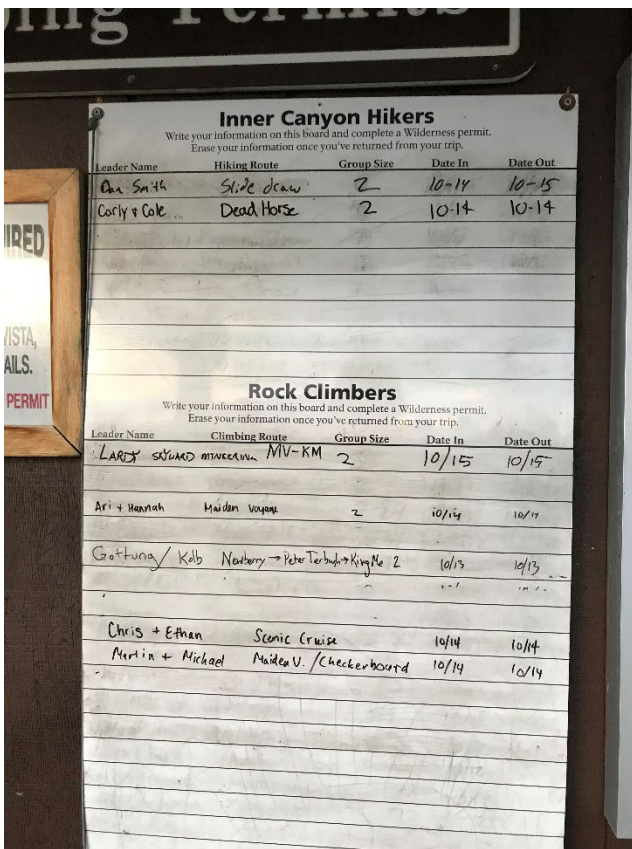 ing Permits
Inner Canyon Hikers
Write your information on this board and complete a Wilderness permit.
Erase your information once you've returned from your trip.
Leader Name Hiking Route Group Size Date In Date Out
Smith Slide draw 2 10-14 10-15
Carly + Cole Dead Horse 2 10-14 10-14
IRED
VISTA,
AILS.
PERMIT
Rock Climbers
Write your information on this board and complete a Wilderness permit.
Erase your information once you've returned from your trip.
Leader Name Climbing Route Group Size Date In Date Out
LARDY SKYWARD MV-KM 2 10/15 10/15
Ari + Hannah Maiden Voyage 2 10/14
Gottung/Kolb Newberry → Peter Terbush → King Me 2 10/13 10/13
Chris + Ethan Scenic Cruise 10/14 10/14
Martin + Michael Maiden V. /Checkerboard 10/14 10/14